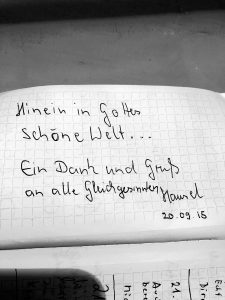 Hinein in Gottes
Schöne Welt...
Ein Dank und Gruß
an alle Gleichgesinnten
Hansel
20.09.15
21